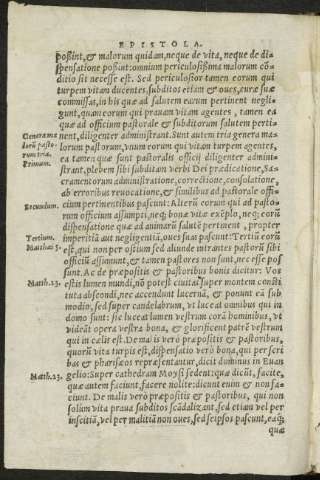 EPISTOLA.
possint, & malorum quidam, neque de vita, neque de di-
spensatione possint: omnium periculosissima malorum cō-
ditio sit necesse est. Sed periculosior tamen eorum qui
turpem vitam ducentes, subditos etiam & oues, curæ suæ
commissas, in his quæ ad salutem earum pertinent negli-
gunt, quam eorum qui prauam vitam agentes, tamen ea
quæ ad officium pastorale & subditorum salutem perti-
nent, diligenter administrant. Sunt autem tria genera ma-
lorum pastorum, vnum eorum qui vitam turpem agentes,
ea tamen quæ sunt pastoralis officij diligenter admini-
strant, plebem sibi subditam verbi Dei prædicatione, sa-
cramentorum administratione, correctione, consolatione,
ab erroribus reuocatione, & similibus ad pastorale offi-
cium pertinentibus pascunt: Alterū eorum qui ad pasto-
rum officium assumpti, neq; bonæ vitæ exēplo, neq; eorū
dispensatione quæ ad animarū salutē pertinent, propter
imperitiā aut negligentiā, oues suas pascunt: Tertiū eorū
est, qui non per ostium sed aliunde intrantes pastorū sibi
officiū assumunt, & tamen pastores non sunt, nec esse pos
sunt. Ac de præpositis & pastoribus bonis dicitur: Vos
estis lumen mundi, nō potest ciuitas super montem consti
tuta abscondi, nec accendunt lucernā, & ponunt eā sub
modio, sed super candelabrum, vt luceat omnibus qui in
domo sunt: sic luceat lumen vestrum corā hominibus, vt
videāt opera vestra bona, & glorificent patrē vestrum
qui in cælis est. De malis verò præpositis & pastoribus,
quorū vita turpis est, dispēsatio verò bona, qui per scri
bas & pharisæos repræsentātur, dicit dominus in Euan
gelio: Super cathedram Moysi sedent: quæ dicūt, facite,
quæ autem faciunt, facere nolite: dicunt enim & non fa-
ciunt. De malis verò præpositis & pastoribus, qui non
solùm vita praua subditos scādalizant, sed etiam vel per
inscitiā, vel per malitiā non oues, sed seipsos pascunt, eaq;
quæ
Genera ma
lorū pasto-
rum tria.
Primum.
Secundum.
Tertium.
Matthæi 5
Matth. 23.
Matth. 23.